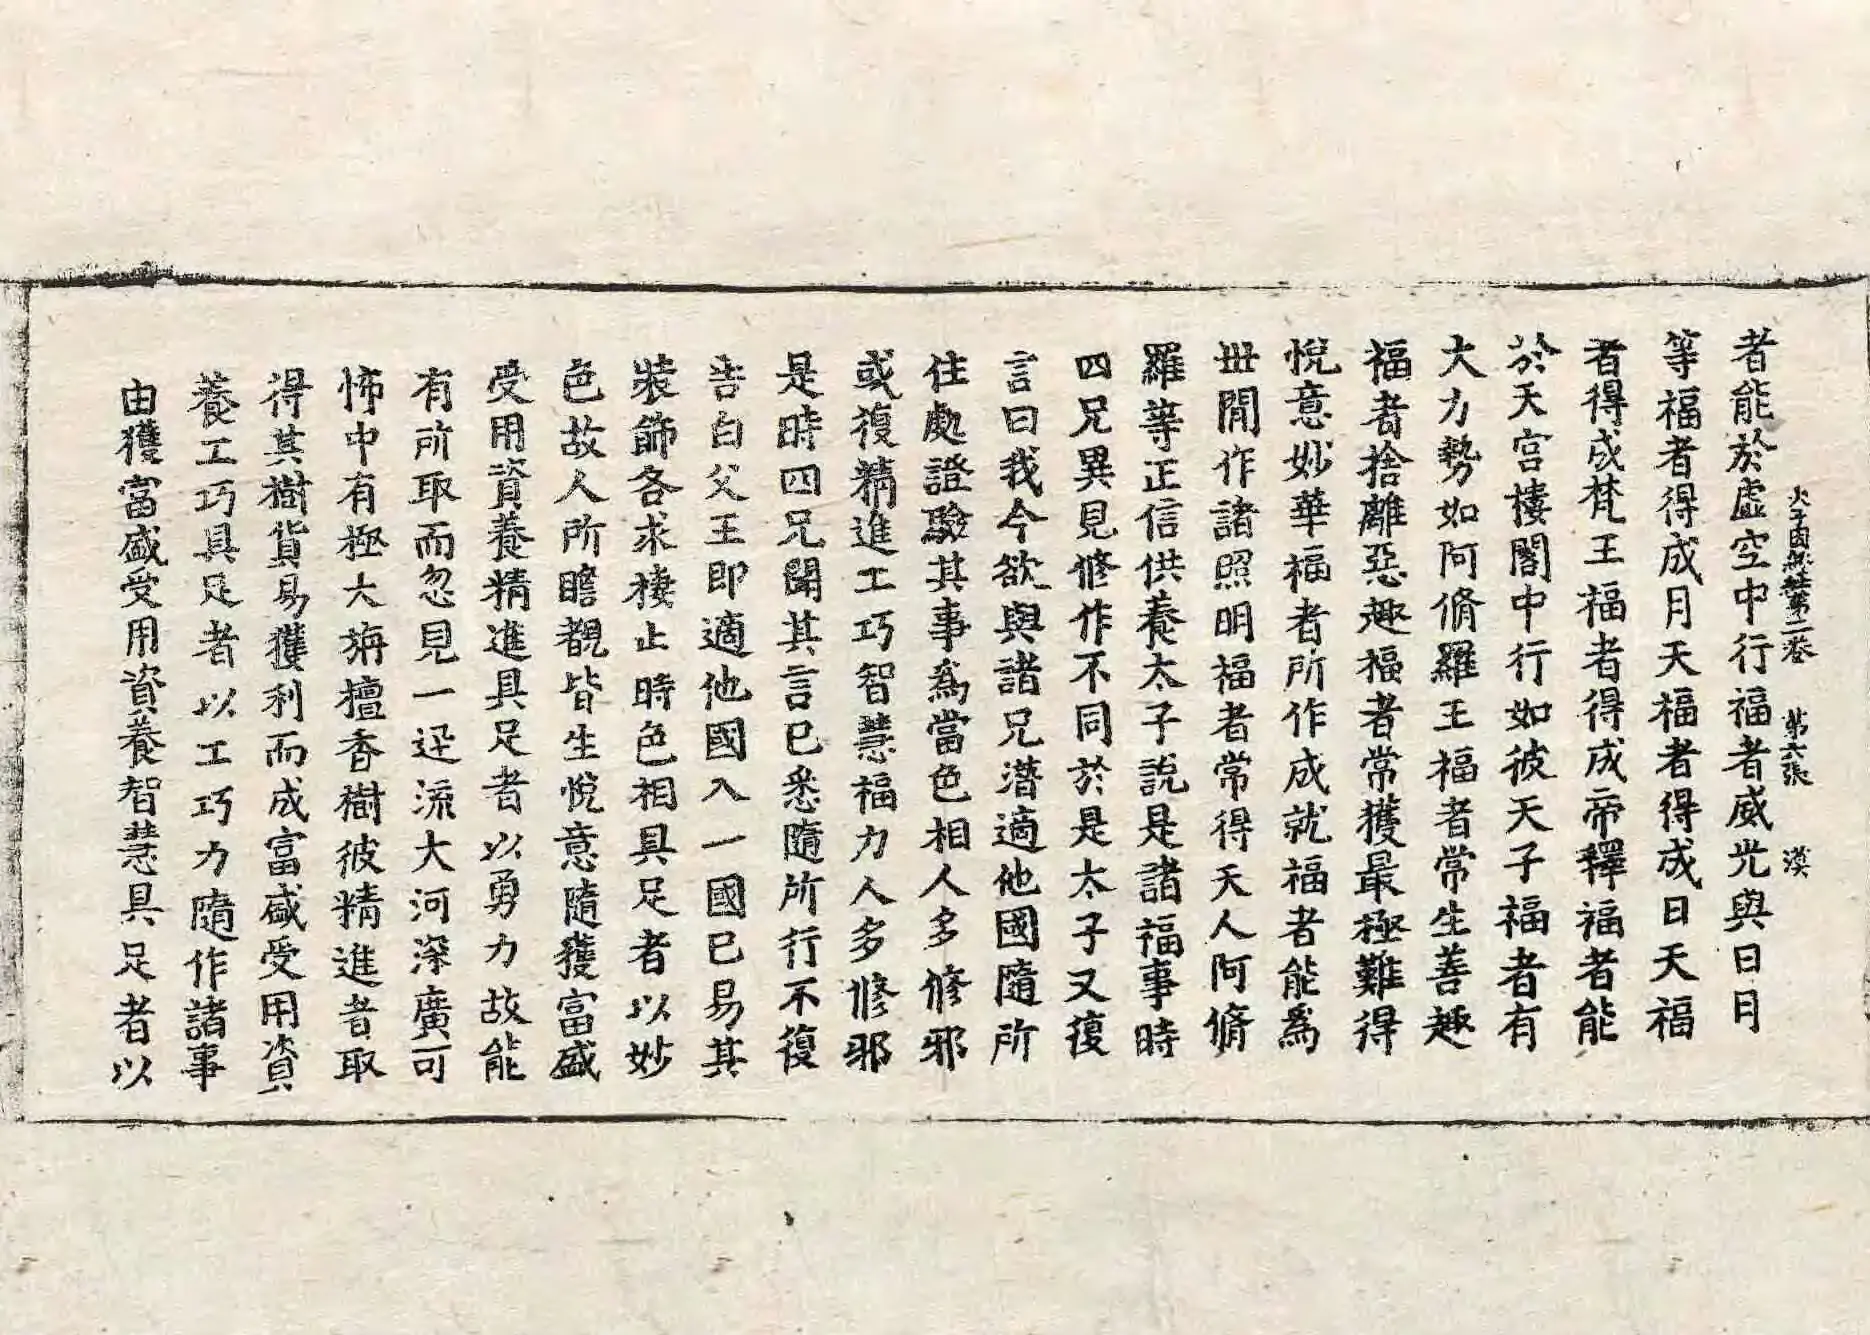 者能於虛空中行福者威光與日月
等福者得成月天福者得成日天福
者得成梵王福者得成帝釋福者能
於天宮樓閣中行如彼天子福者有
大力勢如阿脩羅王福者常生善趣
福者捨離惡趣福者常獲最極難得
悅意妙華福者所作成就福者能爲
世間作諸照明福者常得天人阿脩
羅等正信供養太子說是諸福事時
四兄異見修作不同於是太子又復
言曰我今欲與諸兄潛適他國隨所
住處證驗其事爲當色相人多修邪
或復精進工巧智慧福力人多修邪
是時四兄聞其言已悉隨所行不復
告白父王即適他國入一國已易其
裝飾各求棲止時色相具足者以妙
色故人所瞻覩皆生悅意隨獲富盛
受用資養精進具足者以勇力故能
有所取而忽見一迅流大河深廣可
怖中有極大栴檀香樹彼精進者取
得其樹貨易獲利而成富盛受用資
養工巧具足者以工巧力隨作諸事
由獲富盛受用資養智慧具足者以
子因緣經第二卷 第六張 漠